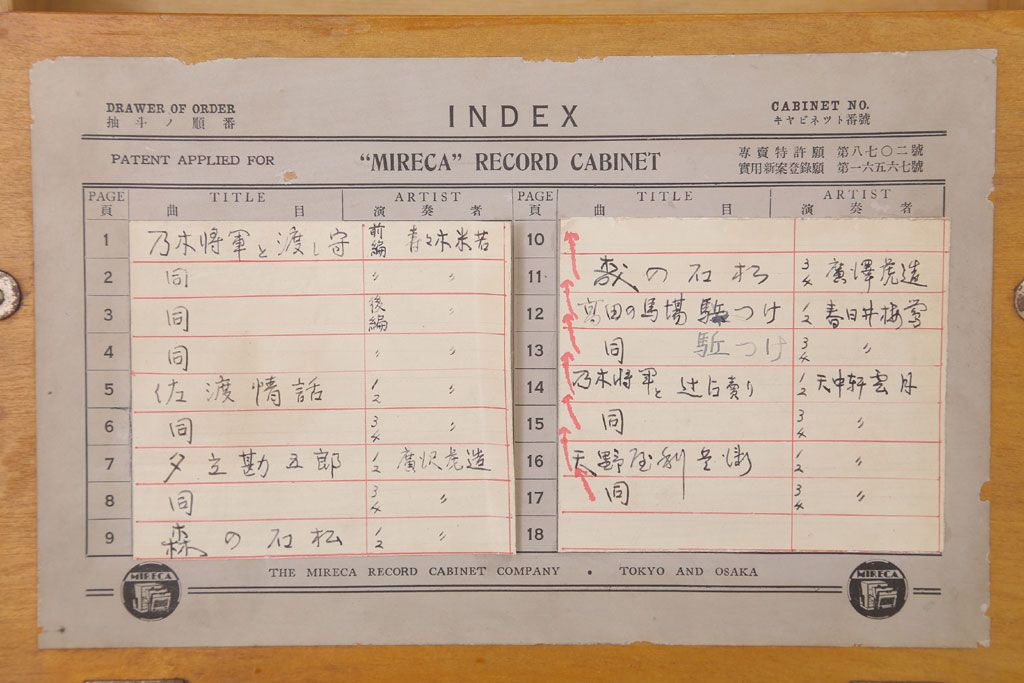 DRAWER OF ORDER
抽斗ノ順番
INDEX
CABINET NO.
キヤビネツト番號
PATENT APPLIED FOR
"MIRECA" RECORD CABINET
專賣特許願 第八七〇二號
實用新案登錄願 第一六五六七號
PAGE TITLE ARTIST PAGE TITLE ARTIST
頁 曲目 演奏者 頁 曲目 演奏者
1 乃木将軍と渡し守 前編 春々木米若
2 同 〃 〃
3 同 後編
4 同 〃 〃
5 佐渡情話 1/2
6 同 3/4
7 夕立勘五郎 1/2 廣沢虎造
8 同 3/4 〃
9 森の石松 1/2 〃
10
11 森の石松 3/4 廣澤虎造
12 高田の馬場 駈つけ 1/2 春日井梅鶯
13 同 駈つけ 3/4 〃
14 乃木将軍と辻占賣り 1/2 天中軒雲月
15 同 3/4 〃
16 天野屋利兵衛 1/2 〃
17 同 3/4 〃
18
THE MIRECA RECORD CABINET COMPANY • TOKYO AND OSAKA
MIRECA
MIRECA